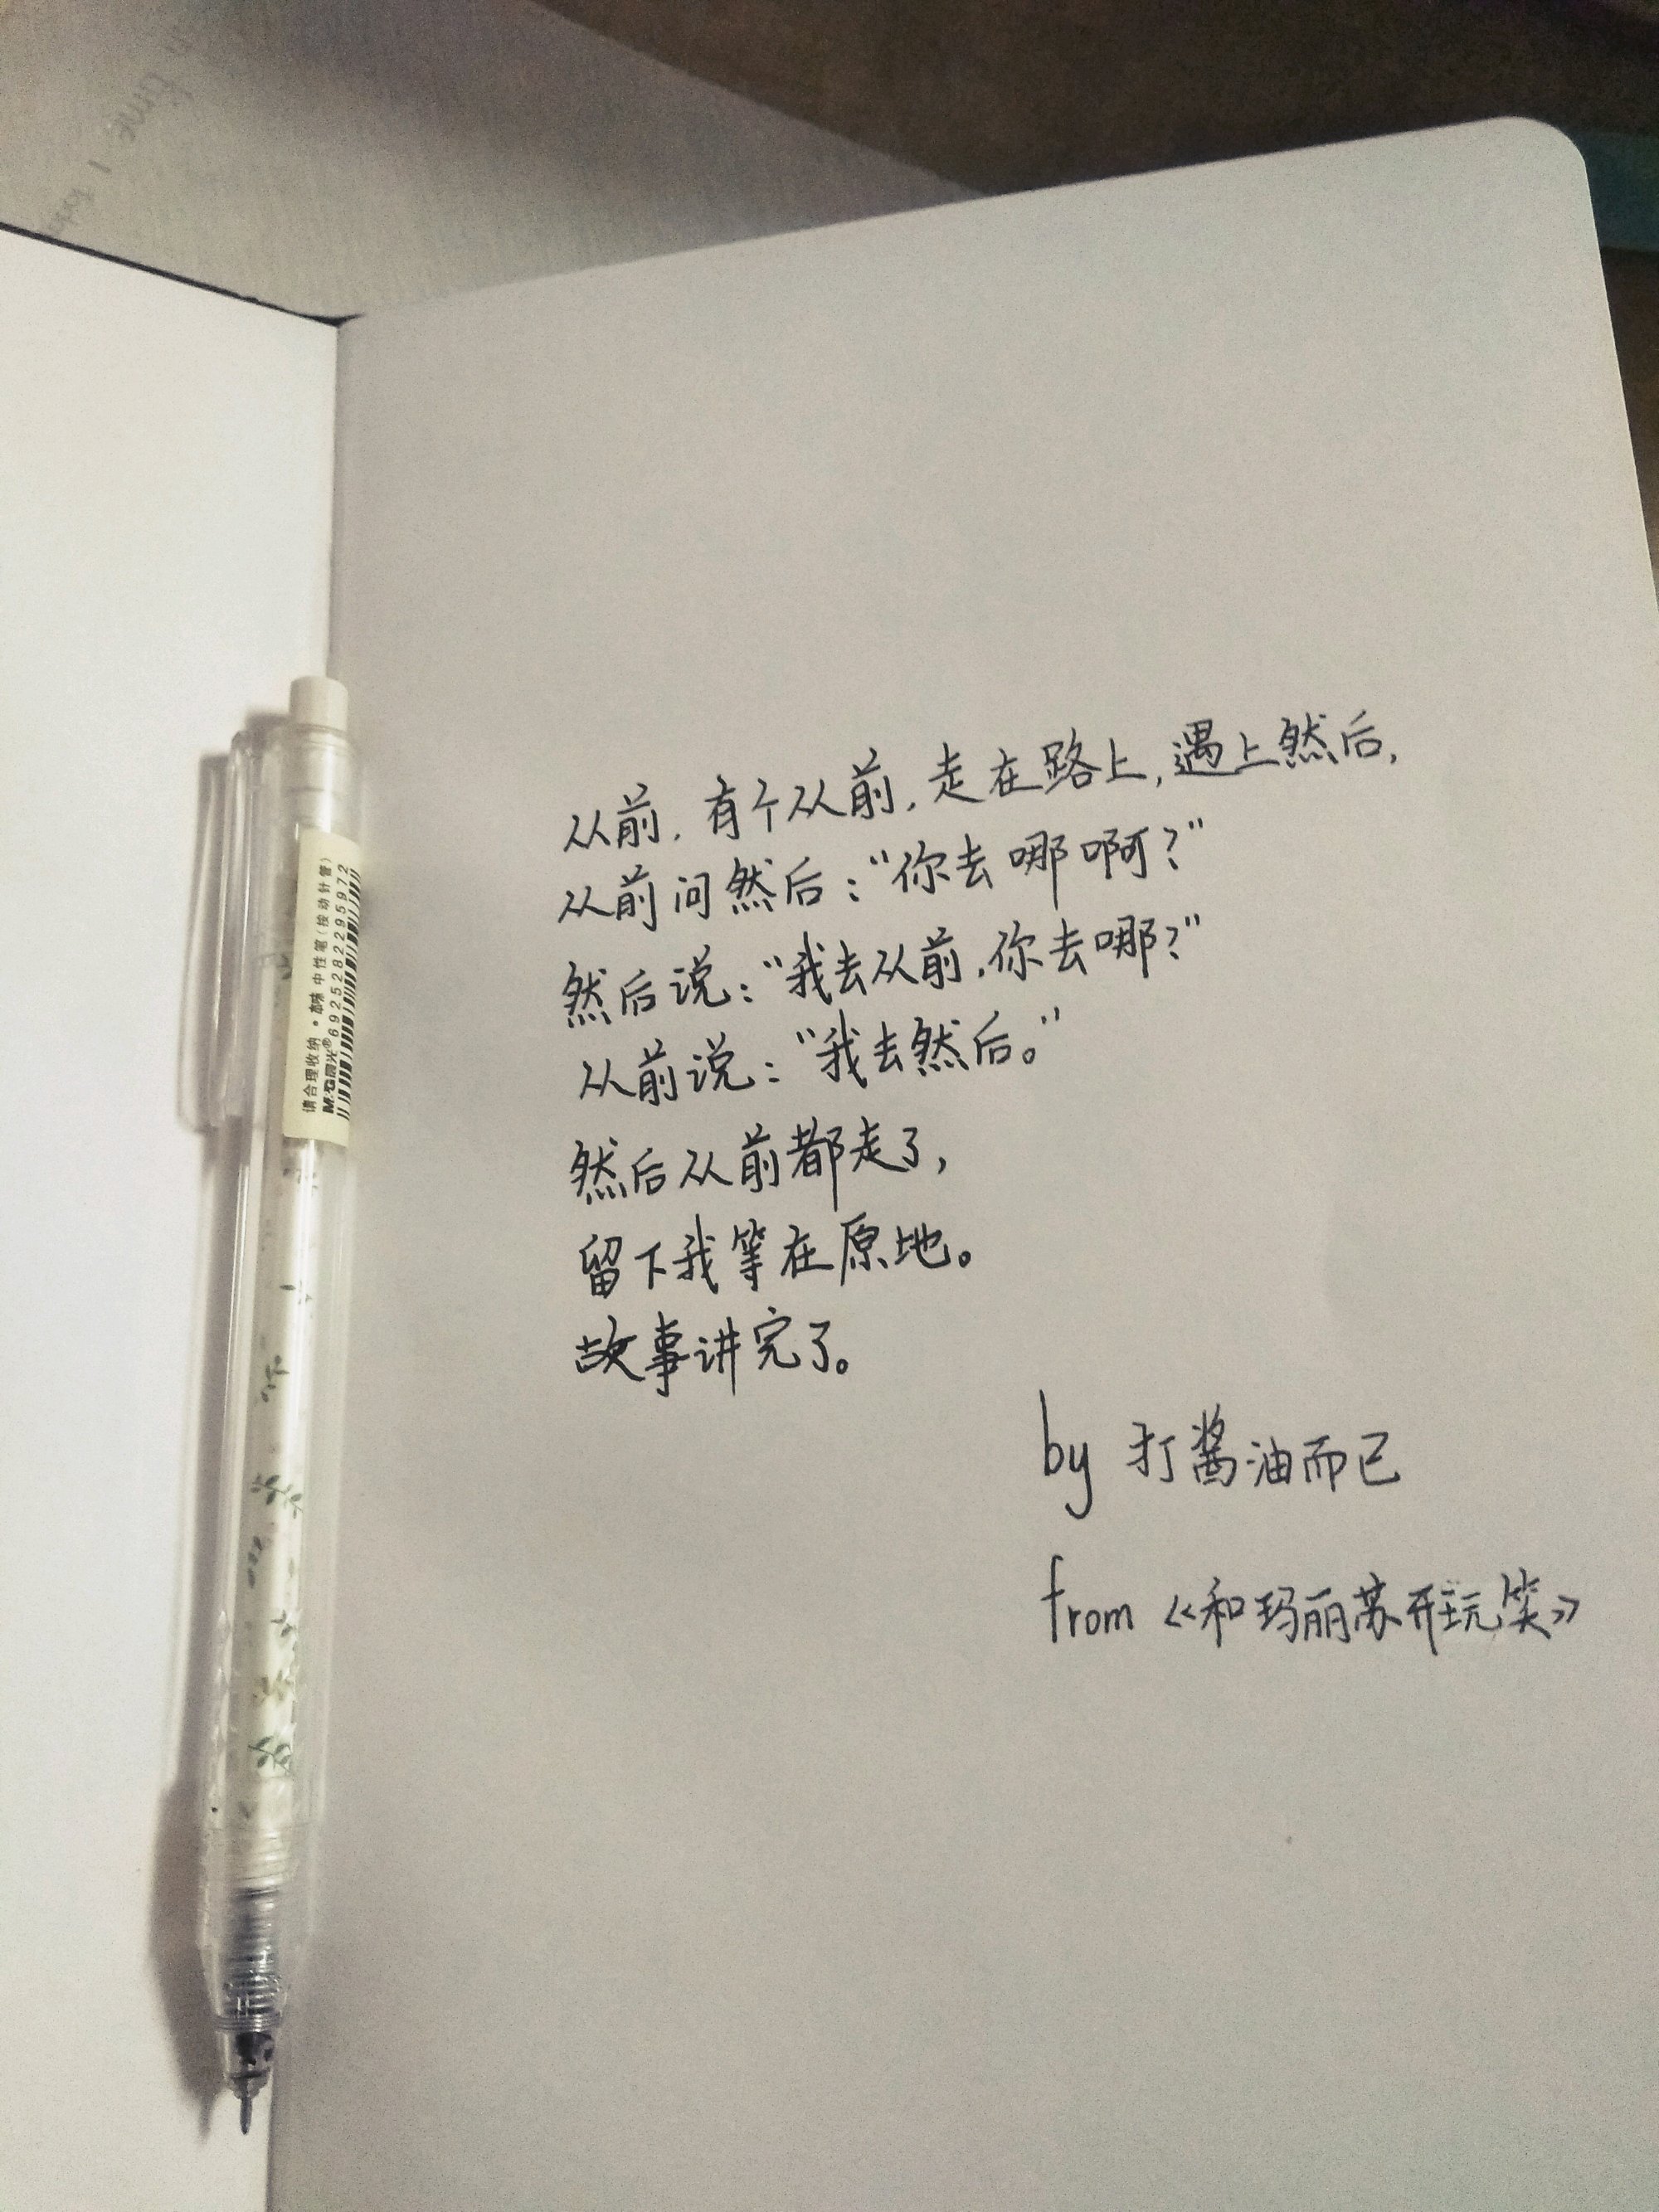 从前，有个从前，走在路上，遇上然后，
从前问然后：“你去哪啊？”
然后说：“我去从前，你去哪？”
从前说：“我去然后。”
然后从前都走了，
留下我等在原地。
故事讲完了。
by 打酱油而已
from《和玛丽苏开玩笑》
请合理收纳·本味 中性笔（按动针管）
M&G晨光® 6925282295972